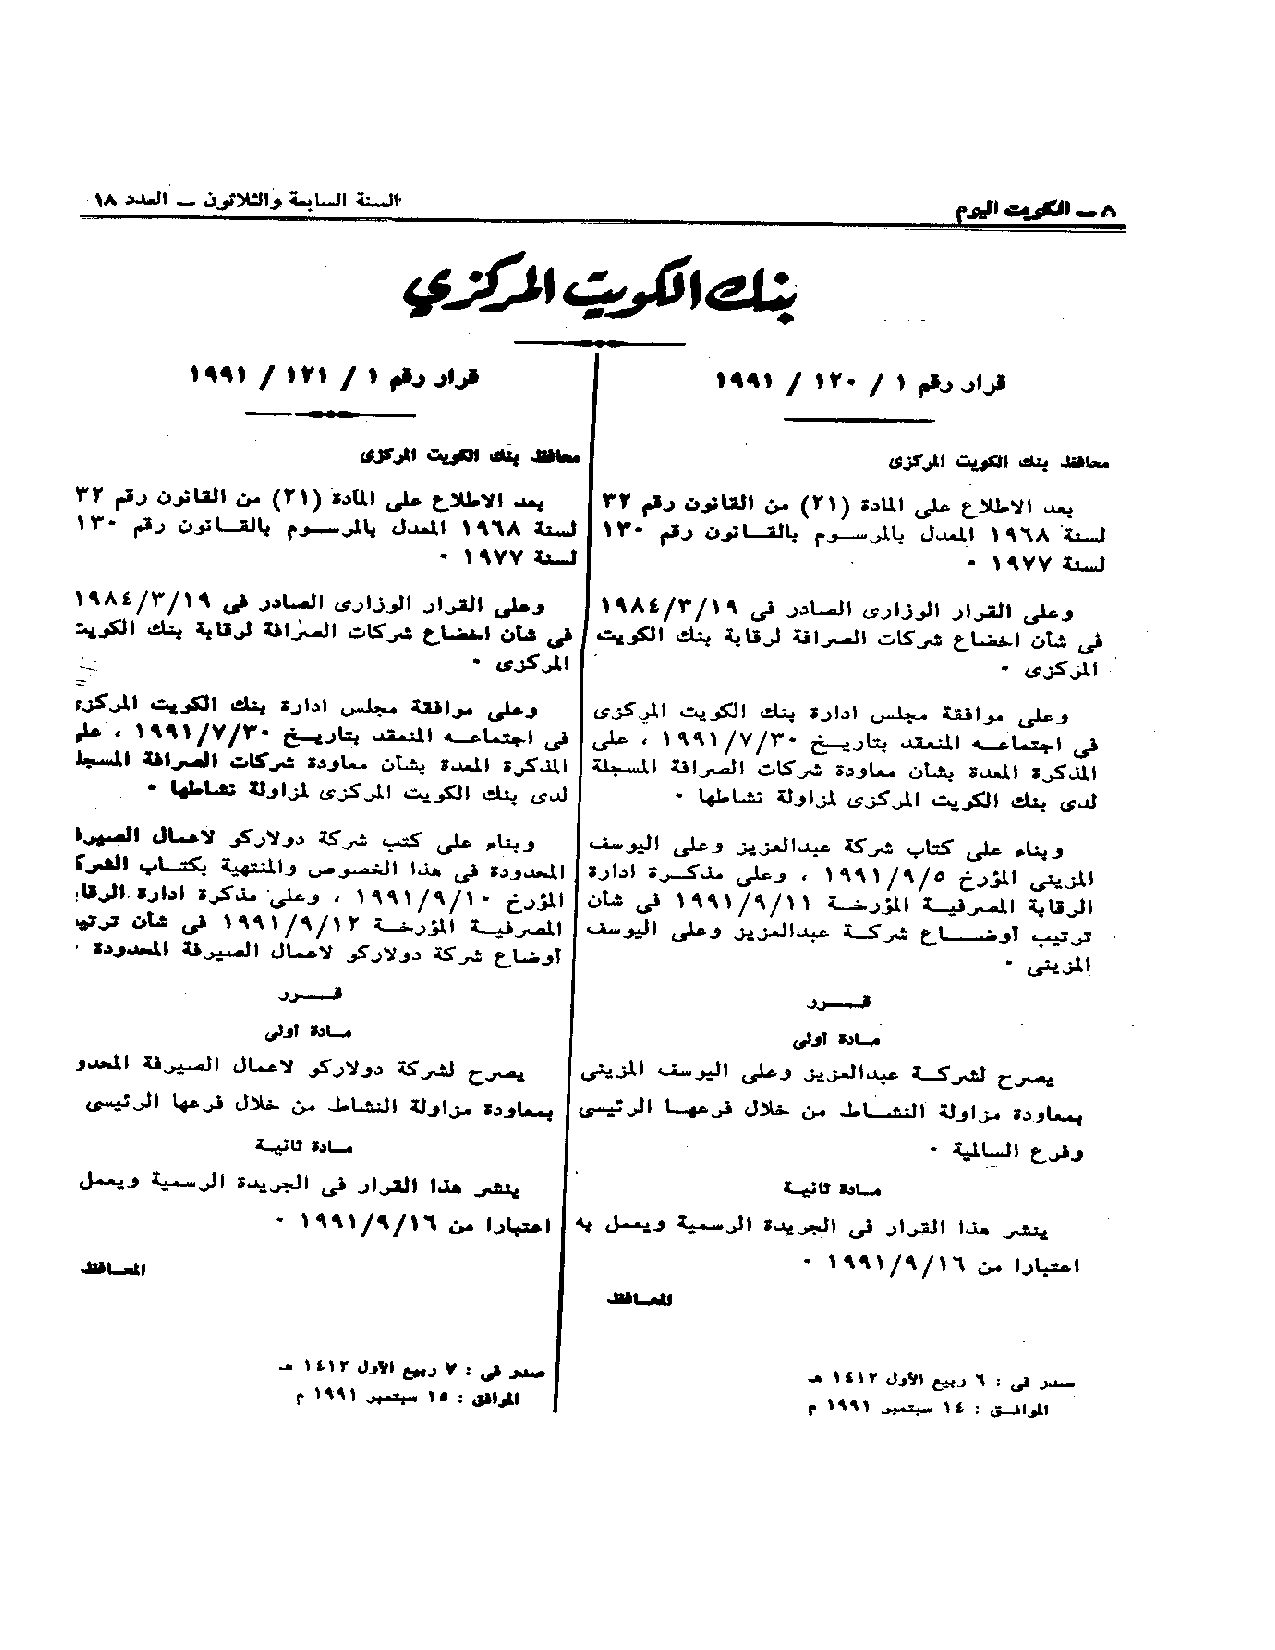 ٨ ــ الكويت اليوم
السنة السابعة والثلاثون ــ العدد ١٨
بنك الكويت المركزي
قرار رقم ١ / ١٢٠ / ١٩٩١
محافظ بنك الكويت المركزى
بعد الاطلاع على المادة (٢١) من القانون رقم ٣٢
لسنة ١٩٦٨ المعدل بالمرسوم بالقانون رقم ١٣٠
لسنة ١٩٧٧ ٠
وعلى القرار الوزارى الصادر فى ١٩٨٤/٣/١٩
فى شأن اخضاع شركات الصرافة لرقابة بنك الكويت
المركزى ٠
وعلى موافقة مجلس ادارة بنك الكويت المركزى
فى اجتماعه المنعقد بتاريخ ١٩٩١/٧/٣٠ ، على
المذكرة المعدة بشأن معاودة شركات الصرافة المسجلة
لدى بنك الكويت المركزى لمزاولة نشاطها ٠
وبناء على كتاب شركة عبدالعزيز وعلى اليوسف
المزينى المؤرخ ١٩٩١/٩/٥ ، وعلى مذكرة ادارة
الرقابة المصرفية المؤرخة ١٩٩١/٩/١١ فى شأن
ترتيب أوضاع شركة عبدالعزيز وعلى اليوسف
المزينى ٠
قرر
مادة أولى
يصرح لشركة عبدالعزيز وعلى اليوسف المزينى
بمعاودة مزاولة النشاط من خلال فرعها الرئيسى
وفرع السالمية ٠
مادة ثانية
ينشر هذا القرار فى الجريدة الرسمية ويعمل به
اعتبارا من ١٩٩١/٩/١٦ ٠
المحافظ
صدر فى : ٦ ربيع الأول ١٤١٢ هـ
الموافق : ١٤ سبتمبر ١٩٩١ م
قرار رقم ١ / ١٢١ / ١٩٩١
محافظ بنك الكويت المركزى
بعد الاطلاع على المادة (٢١) من القانون رقم ٣٢
لسنة ١٩٦٨ المعدل بالمرسوم بالقانون رقم ١٣٠
لسنة ١٩٧٧ ٠
وعلى القرار الوزارى الصادر فى ١٩٨٤/٣/١٩
فى شأن اخضاع شركات الصرافة لرقابة بنك الكويت
المركزى ٠
وعلى موافقة مجلس ادارة بنك الكويت المركزى
فى اجتماعه المنعقد بتاريخ ١٩٩١/٧/٣٠ ، على
المذكرة المعدة بشأن معاودة شركات الصرافة المسجلة
لدى بنك الكويت المركزى لمزاولة نشاطها ٠
وبناء على كتب شركة دولاركو لاعمال الصيرفة
المحدودة فى هذا الخصوص والمنتهية بكتاب الشركة
المؤرخ ١٩٩١/٩/١٠ ، وعلى مذكرة ادارة الرقابة
المصرفية المؤرخة ١٩٩١/٩/١٢ فى شأن ترتيب
أوضاع شركة دولاركو لاعمال الصيرفة المحدودة ٠
قرر
مادة أولى
يصرح لشركة دولاركو لاعمال الصيرفة المحدودة
بمعاودة مزاولة النشاط من خلال فرعها الرئيسى
مادة ثانية
ينشر هذا القرار فى الجريدة الرسمية ويعمل
اعتبارا من ١٩٩١/٩/١٦ ٠
المحافظ
صدر فى : ٧ ربيع الأول ١٤١٢ هـ
الموافق : ١٥ سبتمبر ١٩٩١ م